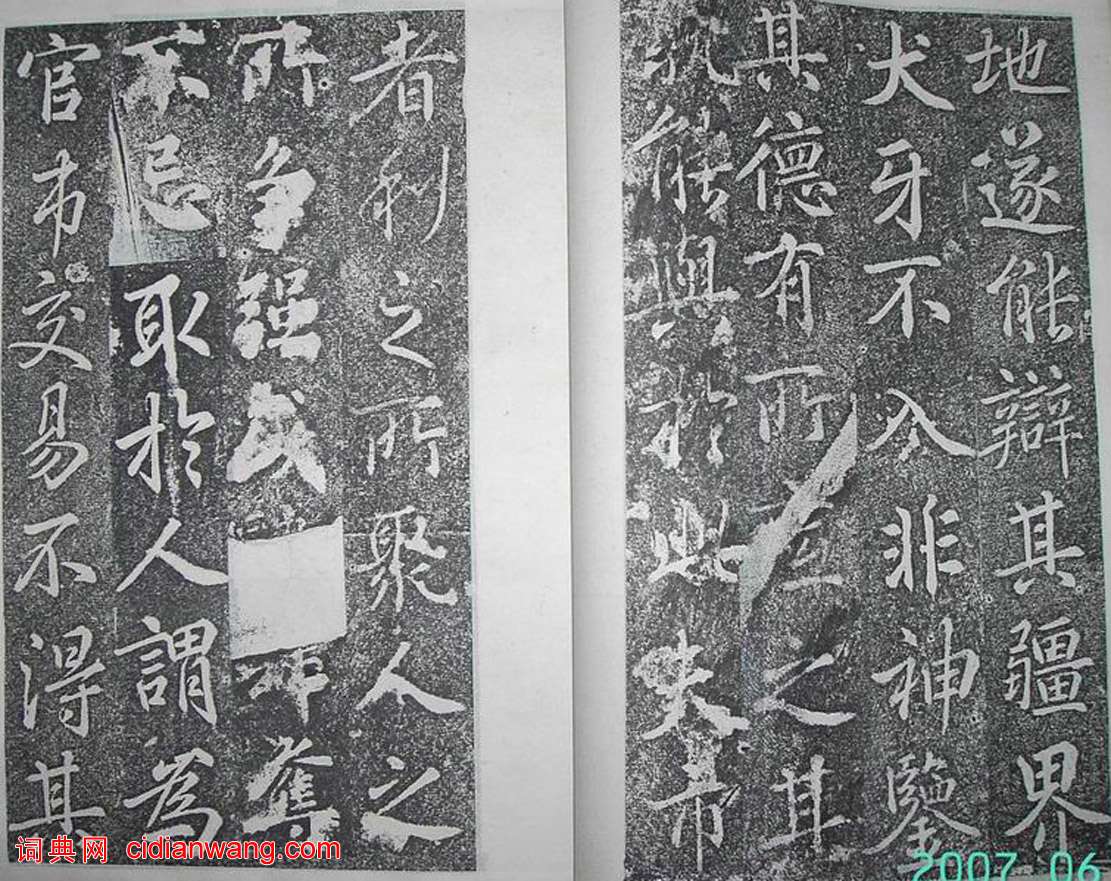 地遂能辯其疆界
犬牙不入非神鑒
其德有所至之其
孰能與於此夫市
者利之所聚人之
所爭強或奪
不忌取於人謂爲
官市交易不得其
词典网 cidianwang.com
2007 06